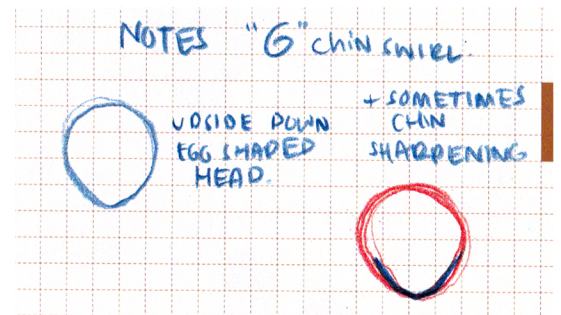 NOTES "G" chin swirl.
UPSIDE DOWN
EGG SHAPED
HEAD.
+ SOMETIMES
CHIN
SHARPENING